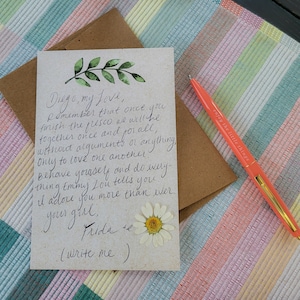 Diego, my Love,
Remember that once you
finish the fresco we will be
together once and for all,
without arguments or anything,
Only to love one another.
Behave yourself and do every-
thing Emmy Lou tells you.
I adore you more than ever.
your girl,
Frida
(write me )